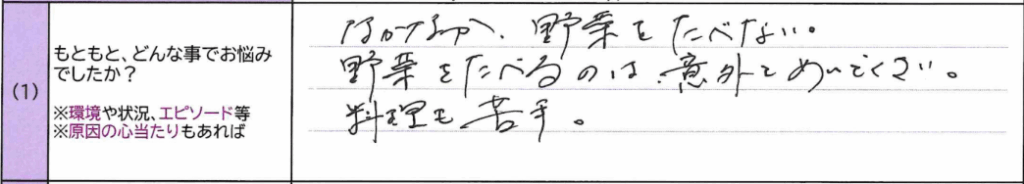 (1)
もともと、どんな事でお悩み
でしたか?
※環境や状況、エピソード等
※原因の心当たりもあれば
なかなか、野菜をたべない。
野菜をたべるのは、意外とめんどくさい。
料理も苦手。